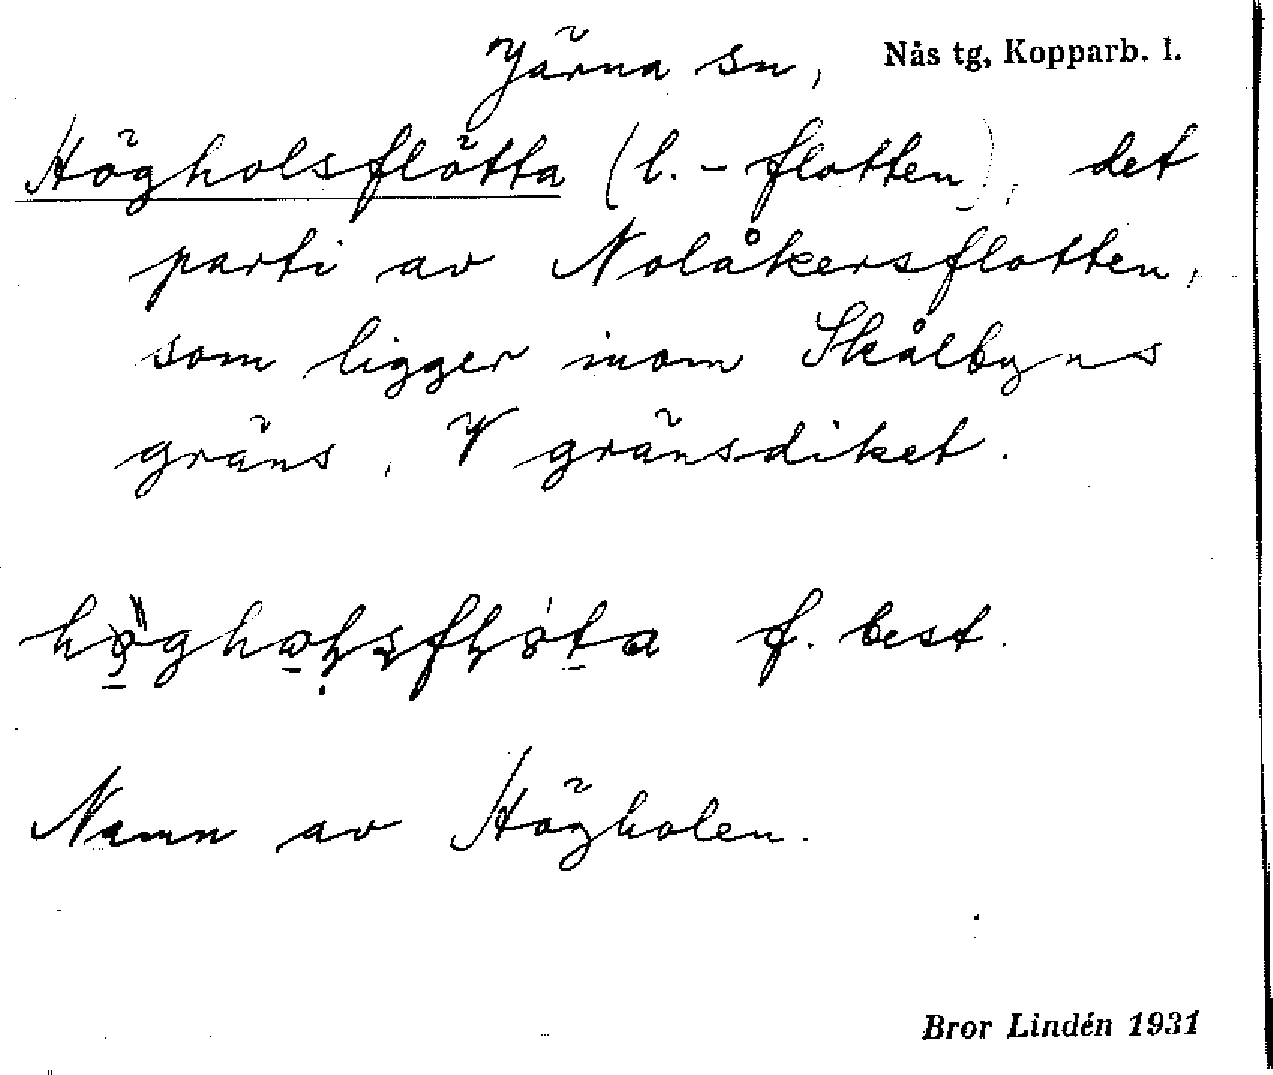 Järna sn, Nås tg, Kopparb. l.
Högholsflötta (l. -flotten), det
parti av Nolåkersflotten,
som ligger inom Skålbyns
gräns, V gränsdiket.
f. best.
Namn av Högholen.
Bror Lindén 1931